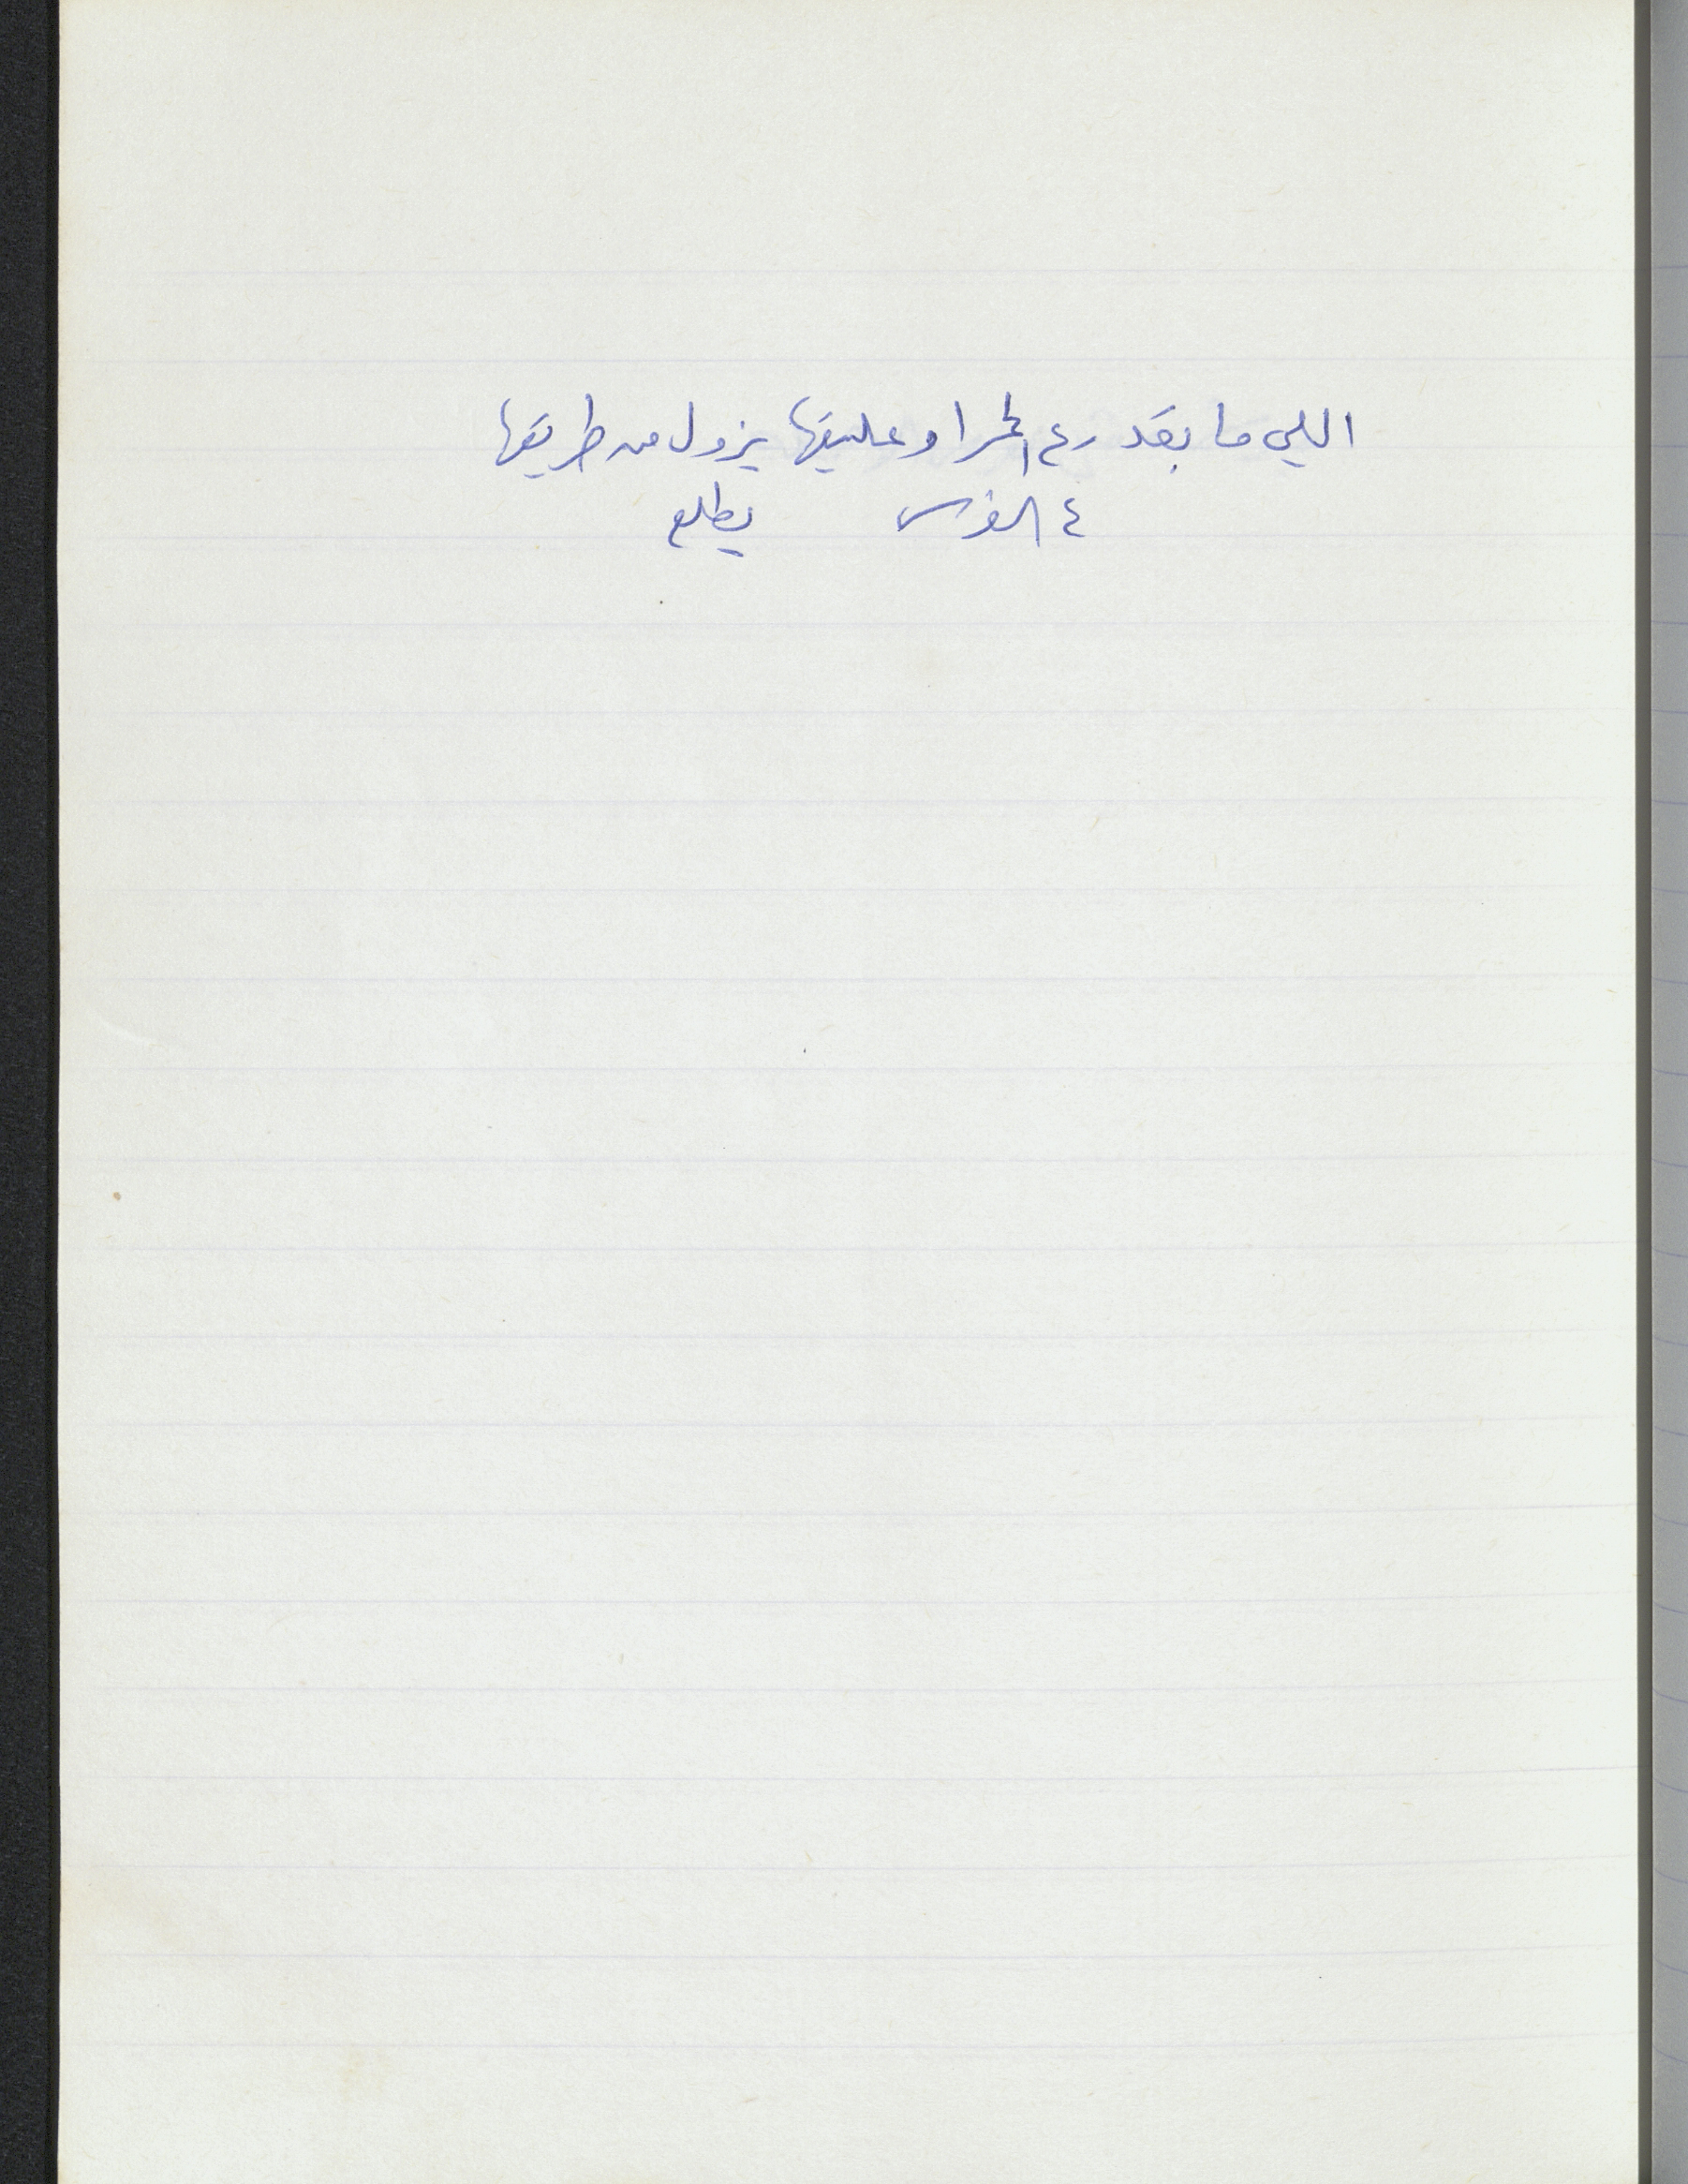 اللي ما بقدر ع الحمرا وعليقها يزول من طريقها
ع الفرس يطلع